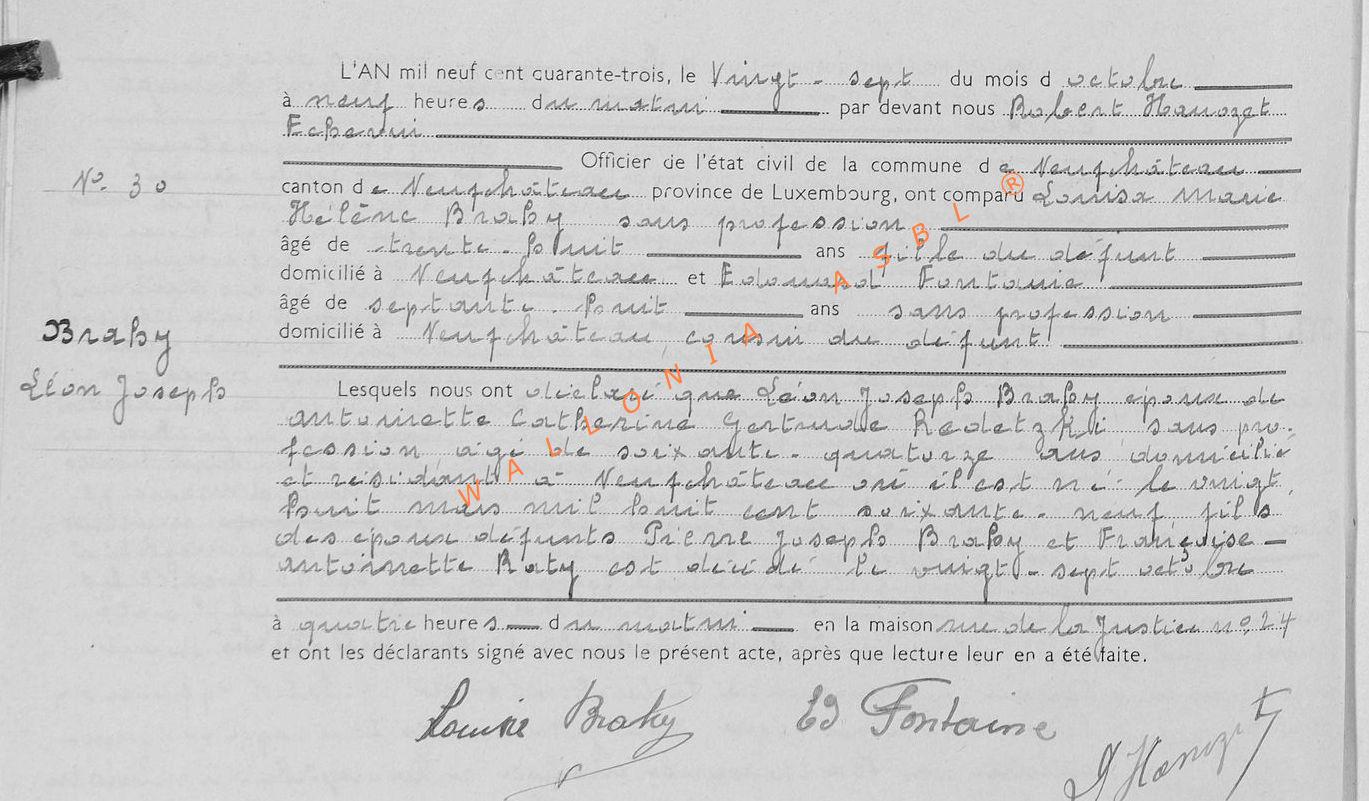 L'AN mil neuf cent quarante-trois, le Vingt-sept du mois d octobre
à neuf heures du matin par devant nous Robert Hanozet
Echevin
Officier de l'état civil de la commune de Neufchâteau
N° 30
canton de Neufchâteau province de Luxembourg, ont comparu Louisa Marie
Hélène Braky sans profession
âgé de trente-huit ans fille du défunt
domicilié à Neufchâteau et Edouard Fontaine
âgé de septante-huit ans sans profession
domicilié à Neufchâteau, cousin du défunt
Braky
Léon Joseph
Lesquels nous ont déclaré que Léon Joseph Braky époux de
Antoinette Catherine Gertrude Redetzki, sans pro-
fession âgé de soixante-quatorze ans domicilié
et résidant à Neufchâteau où il est né le vingt
huit mars mil huit cent soixante-neuf, fils
des époux défunts Pierre Joseph Braky et Françoise
Antoinette Raty est décédé le vingt-sept octobre
à quatre heures du matin en la maison rue de la Justice n° 24
et ont les déclarants signé avec nous le présent acte, après que lecture leur en a été faite.
Louise Braky Ed Fontaine
Hanozet
WALLONIA ASBL ®